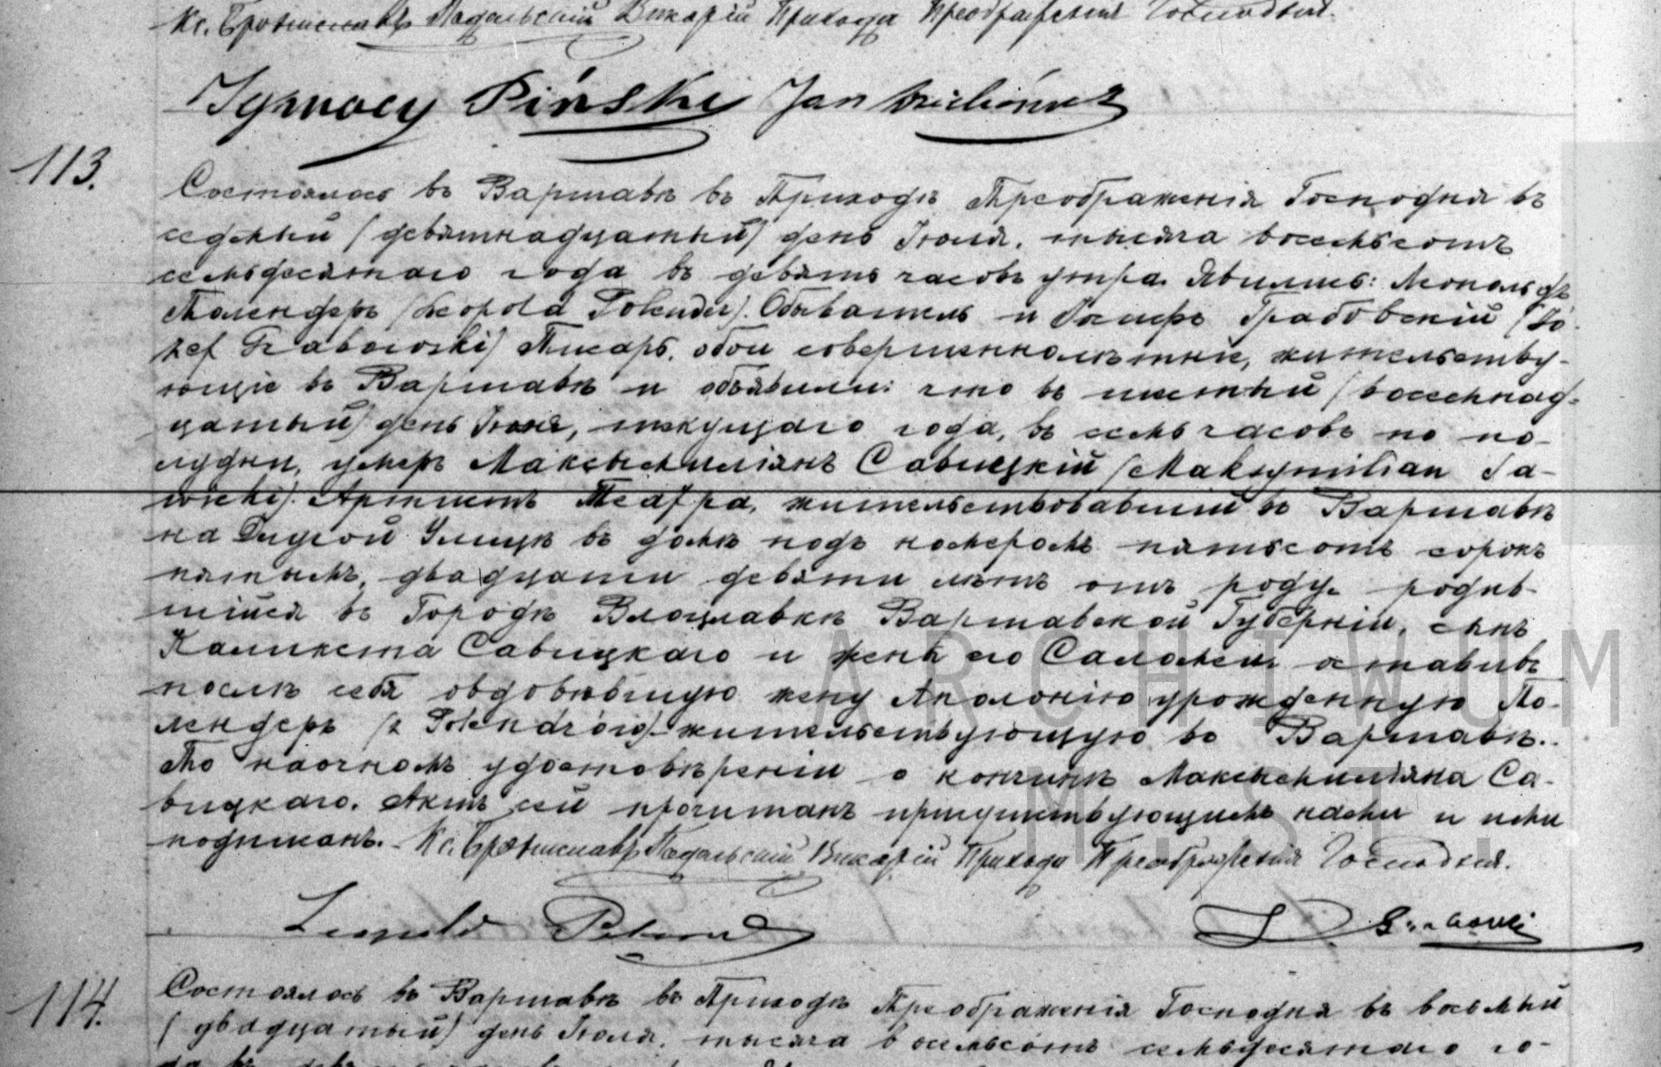 Кс. Брониславъ Подольскій Викарій Прихода Преображенія Господня.
Ignacy Piński Jan
113.
Состоялось въ Варшавѣ въ Приходѣ Преображенія Господня въ
седьмый (девятнадцатый) день Іюля, тысяча восемьсотъ
семьдесятаго года въ девять часовъ утра. Явились: Леопольдъ
Полендеръ (Leopold Polender). Обыватель и Іосифъ Грабовскій (Jó-
zef Grabowski) Писарь, обои совершеннолѣтніе, жительству-
ющіе въ Варшавѣ и объявили: что въ шестый (восемнад-
цатый) день Іюля, текущаго года, въ семь часовъ по по-
лудни, умеръ Максымиліянъ Савицкій (Maksymilian Sa-
wicki). Артистъ Театра, жительствовавшій въ Варшавѣ
на Длугой Улицѣ въ домѣ подъ номеромъ пятьсотъ сорокъ
пятымъ, двадцати девяти лѣтъ отъ роду, родив-
шійся въ Городѣ Влоцлавкѣ Варшавской Губерніи, сынъ
Каликста Савицкаго и жены его Саломеи, оставивъ
послѣ себя овдовѣвшую жену Аполонію урожденную По-
лендеръ (z Polendrów) жительствующую въ Варшавѣ.
По наочномъ удостовѣреніи о кончинѣ Максымиліяна Са-
вицкаго. Актъ сей прочитанъ присутствующимъ нами и ими
подписанъ. Кс. Брониславъ Подольскій Викарій Прихода Преображенія Господня.
Leopold Polender
J. Grabowski
114.
Состоялось въ Варшавѣ въ Приходѣ Преображенія Господня въ восьмый
(двадцатый) день Іюля, тысяча восемьсотъ семьдесятаго го-
ARCHIWUM
M. ST.